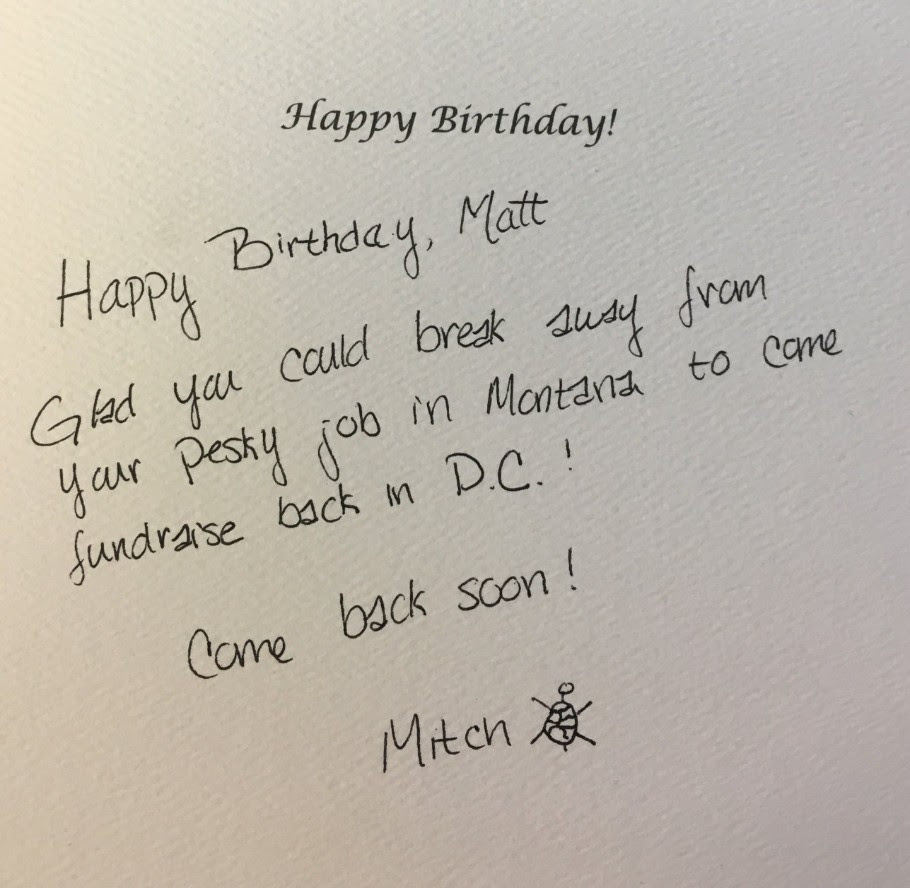 Happy Birthday!
Happy Birthday, Matt
Glad you could break away from
your pesky job in Montana to come
fundraise back in D.C.!
Come back soon!
Mitch